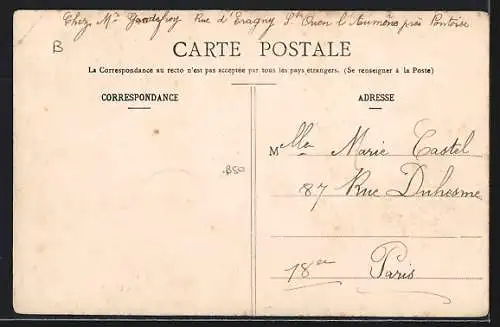 Chez Mr Godefroy Rue d'Eragny St Ouen l'Aumône près Pontoise
B
CARTE POSTALE
La Correspondance au recto n'est pas acceptée par tous les pays étrangers. (Se renseigner à la Poste)
CORRESPONDANCE
ADRESSE
Mlle Marie Castel
B50
87 Rue Duhesme
18e Paris